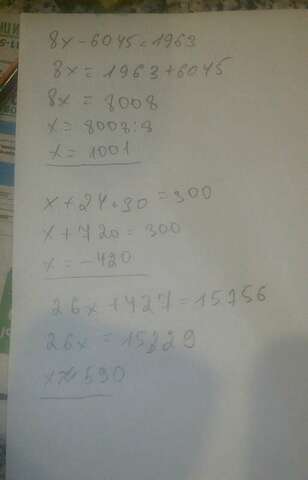 8x-6045=1963
8x=1963+6045
8x=8008
x=8008:8
x=1001
x+24·30=300
x+720=300
x=-420
26x+427=15756
26x=15329
x≈590